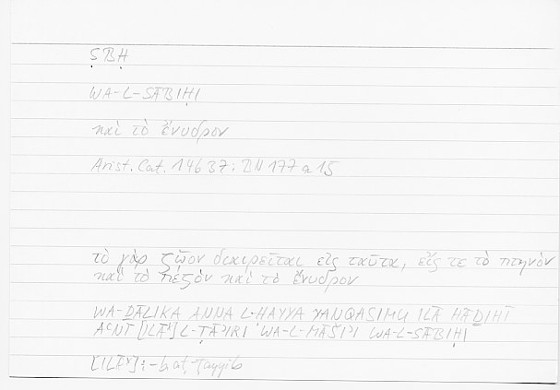 ṢBḤ
WA-L-SĀBIḤI
καὶ τὸ ἔνυδρον
Arist. Cat. 14b37: ZH 177a15
τὸ γὰρ ζῷον διαιρεῖται εἰς ταῦτα, εἴς τε τὸ πτηνὸν
καὶ τὸ πεζὸν καὶ τὸ ἔνυδρον
WA-ḎĀLIKA ANNA L-ḤAYYA YANQASIMU ILĀ HĀḎIHĪ
AʿNĪ [ILĀ¹] L-ṬĀʾIRI WA-L-MĀŠĪ WA-L-SĀBIḤI
[ILĀ¹]: -